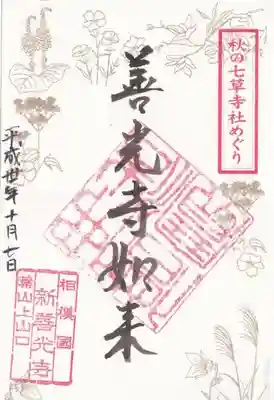 秋の七草寺社めぐり
善光寺如来
平成廿年十月七日
相模國
新善光寺
葉山上山口